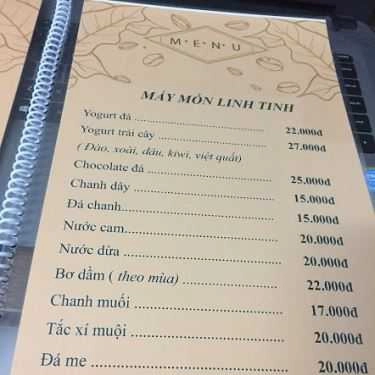 MENU
MẤY MÓN LINH TINH
Yogurt đá ........ 22.000đ
Yogurt trái cây ........ 27.000đ
( Đào, xoài, dâu, kiwi, việt quất)
Chocolate đá ........ 25.000đ
Chanh dây ........ 15.000đ
Đá chanh........ 15.000đ
Nước cam........ 20.000đ
Nước dừa ........ 20.000đ
Bơ dầm ( theo mùa) ........ 22.000đ
Chanh muối ........ 17.000đ
Tắc xí muội ........ 20.000đ
Đá me ........ 20.000đ